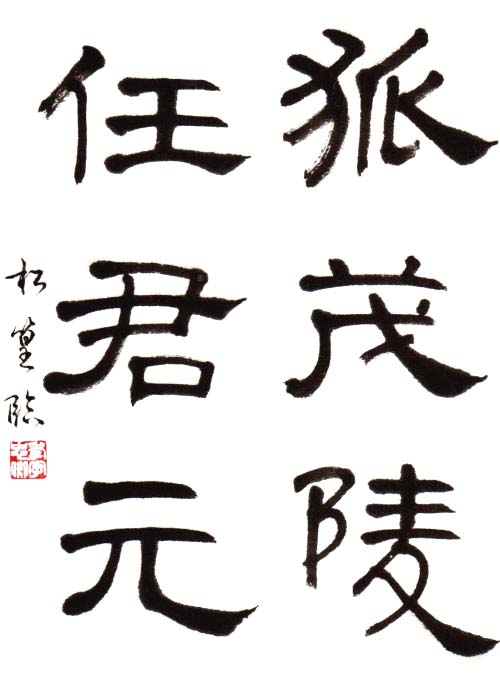 狐茂陵
任君元
松篁臨